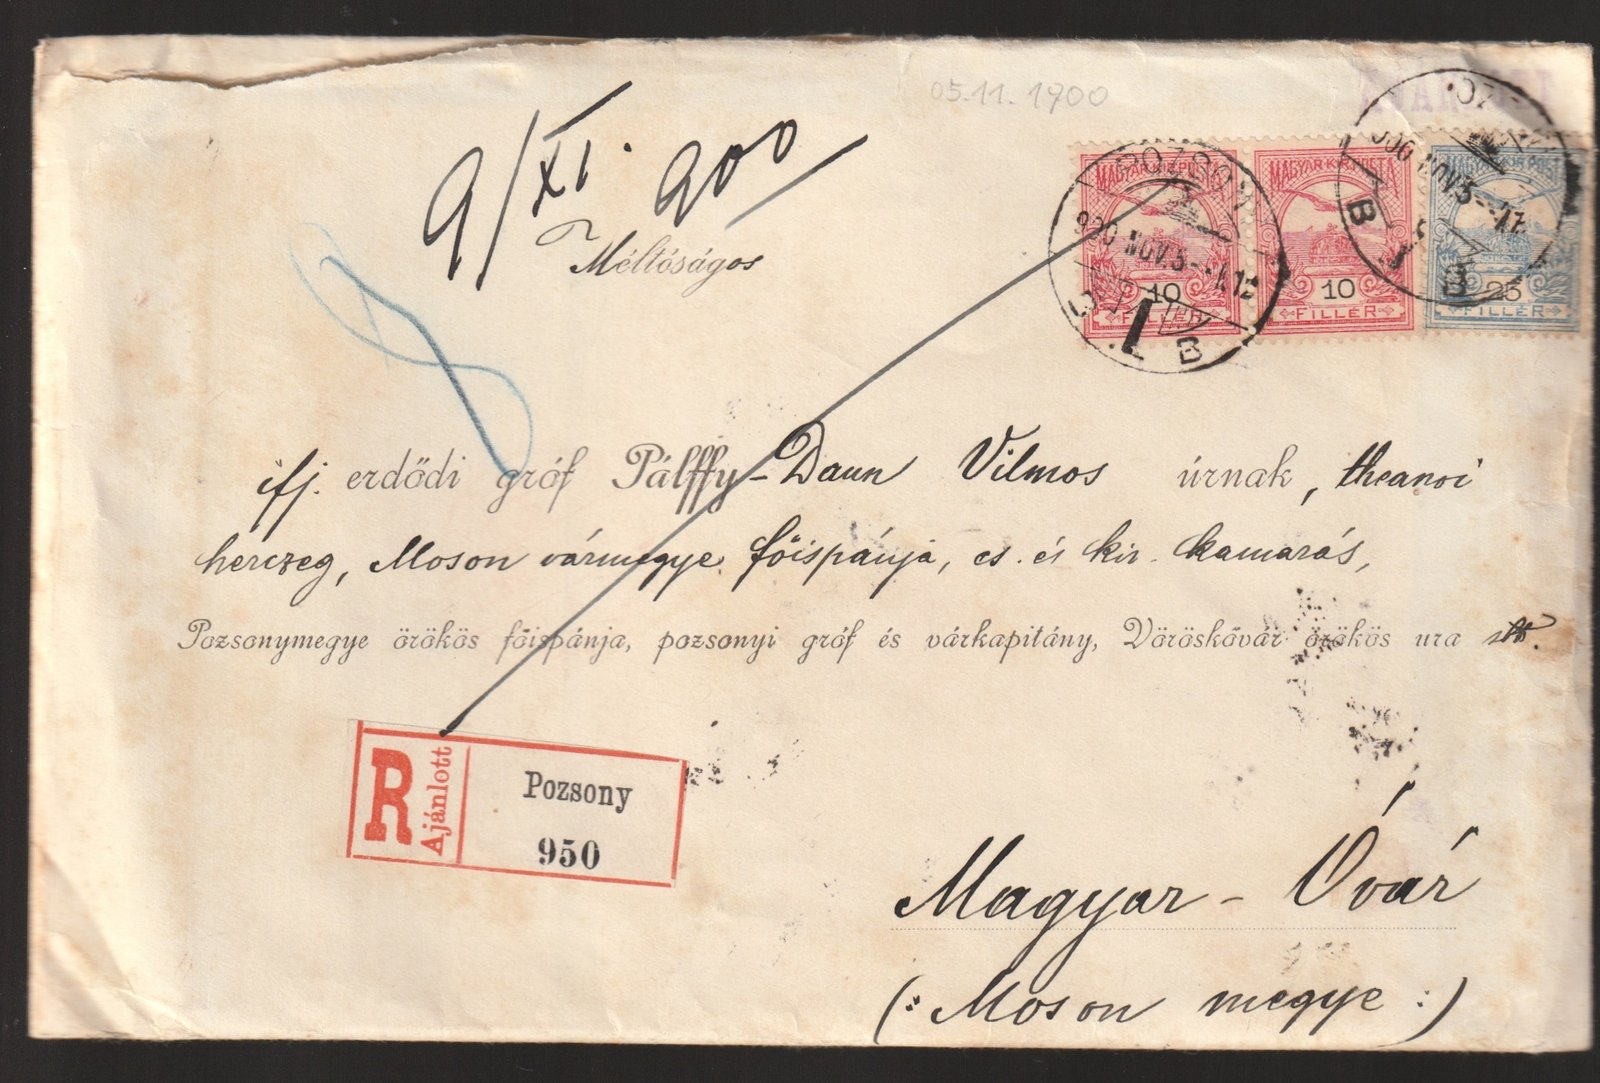 05.11.1900
9/XI. 900
Méltóságos
MAGYAR KIR. POSTA
10
FILLÉR
MAGYAR KIR. POSTA
10
FILLÉR
MAGYAR KIR. POSTA
25
FILLÉR
POZSONY
NOV. 5
B
NOV 5
B
ifj. erdődi gróf Pálffy-Daun Vilmos úrnak, theanoi
herczeg, Moson vármegye főispánja, cs. és kir. kamarás,
Pozsonymegye örökös főispánja, pozsonyi gróf és várkapitány, Vöröskővár örökös ura stb.
R Ajánlott
Pozsony
950
Magyar-Óvár
(: Moson megye :)